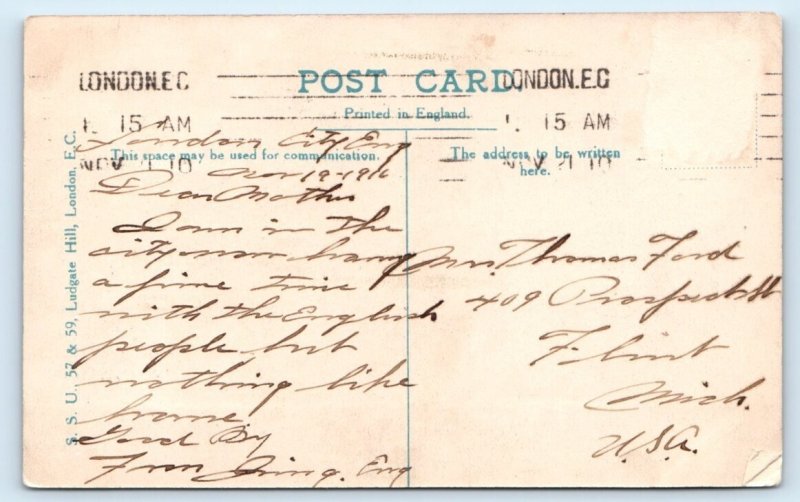 LONDON.E.C
POST CARD
LONDON.E.C
Printed in England.
15 AM
15 AM
NOV 10
NOV 21 10
This space may be used for communication.
The address to be written
here.
S. S. U., 57 & 59, Ludgate Hill, London, E.C.
London City Eng
Nov 19-1910
Dear Mother
I am in the
city now having
a fine time
with the English
people but
nothing like
home
Good By
From Eng
Mrs. Thomas Ford
409 Prospect St
Flint
Mich.
U.S.A.